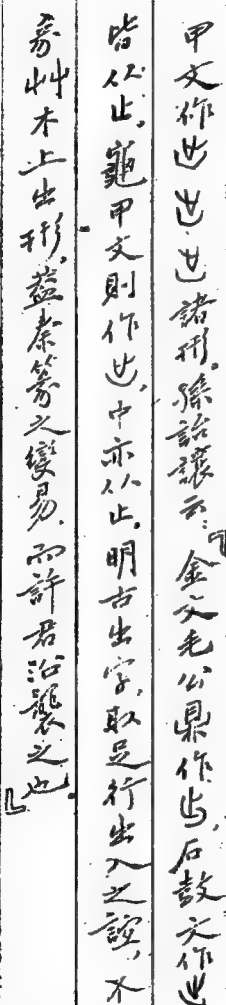 甲文作㞢㞢㞢諸形。孫詒讓云:『金文毛公鼎作㞢,石鼓文作㞢
皆从止。龜甲文則作㞢,中亦从止。明古出字,取足行出入之誼,不
象艸木上出形,蓋秦篆之變易,而許君沿襲之也。』